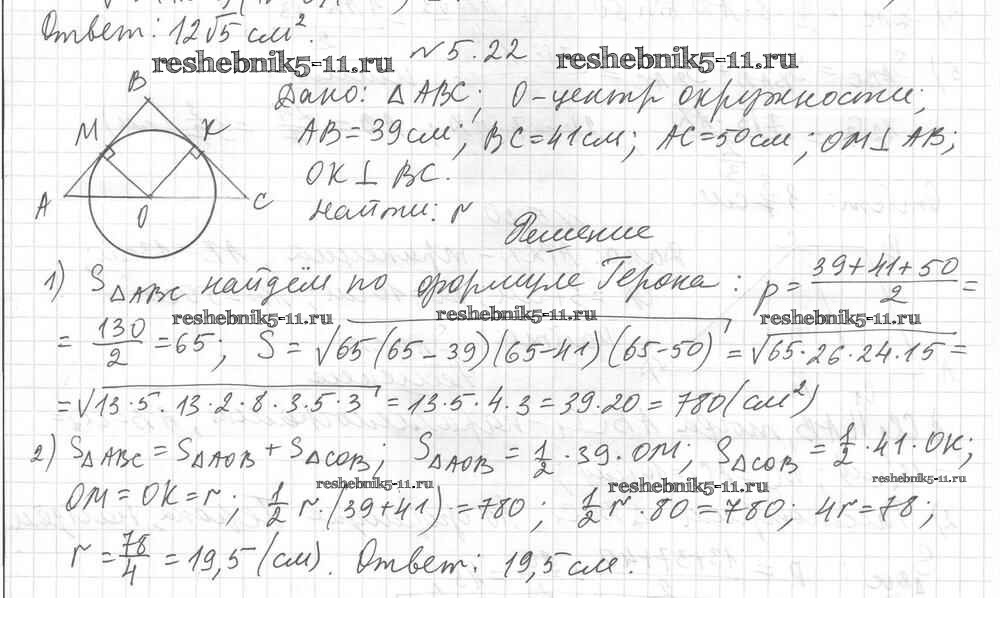 Ответ: 12√5 см².
№ 5.22
reshebnik5-11.ru reshebnik5-11.ru
B
M K
A O C
Дано: △ABC; O-центр окружности;
AB=39см; BC=41см; AC=50см; OM⊥AB;
OK⊥BC.
Найти: r
Решение
1) S△ABC найдём по формуле Герона: p = (39+41+50)/2 =
reshebnik5-11.ru reshebnik5-11.ru reshebnik5-11.ru
= 130/2 = 65; S = √65(65-39)(65-41)(65-50) = √65·26·24·15 =
= √13·5·13·2·8·3·5·3 = 13·5·4·3 = 39·20 = 780 (см²)
2) S△ABC = S△AOB + S△COB; S△AOB = 1/2·39·OM; S△COB = 1/2·41·OK;
reshebnik5-11.ru reshebnik5-11.ru reshebnik5-11.ru
OM = OK = r; 1/2 r·(39+41) = 780; 1/2 r·80 = 780; 4r = 78;
r = 78/4 = 19,5 (см). Ответ: 19,5 см.